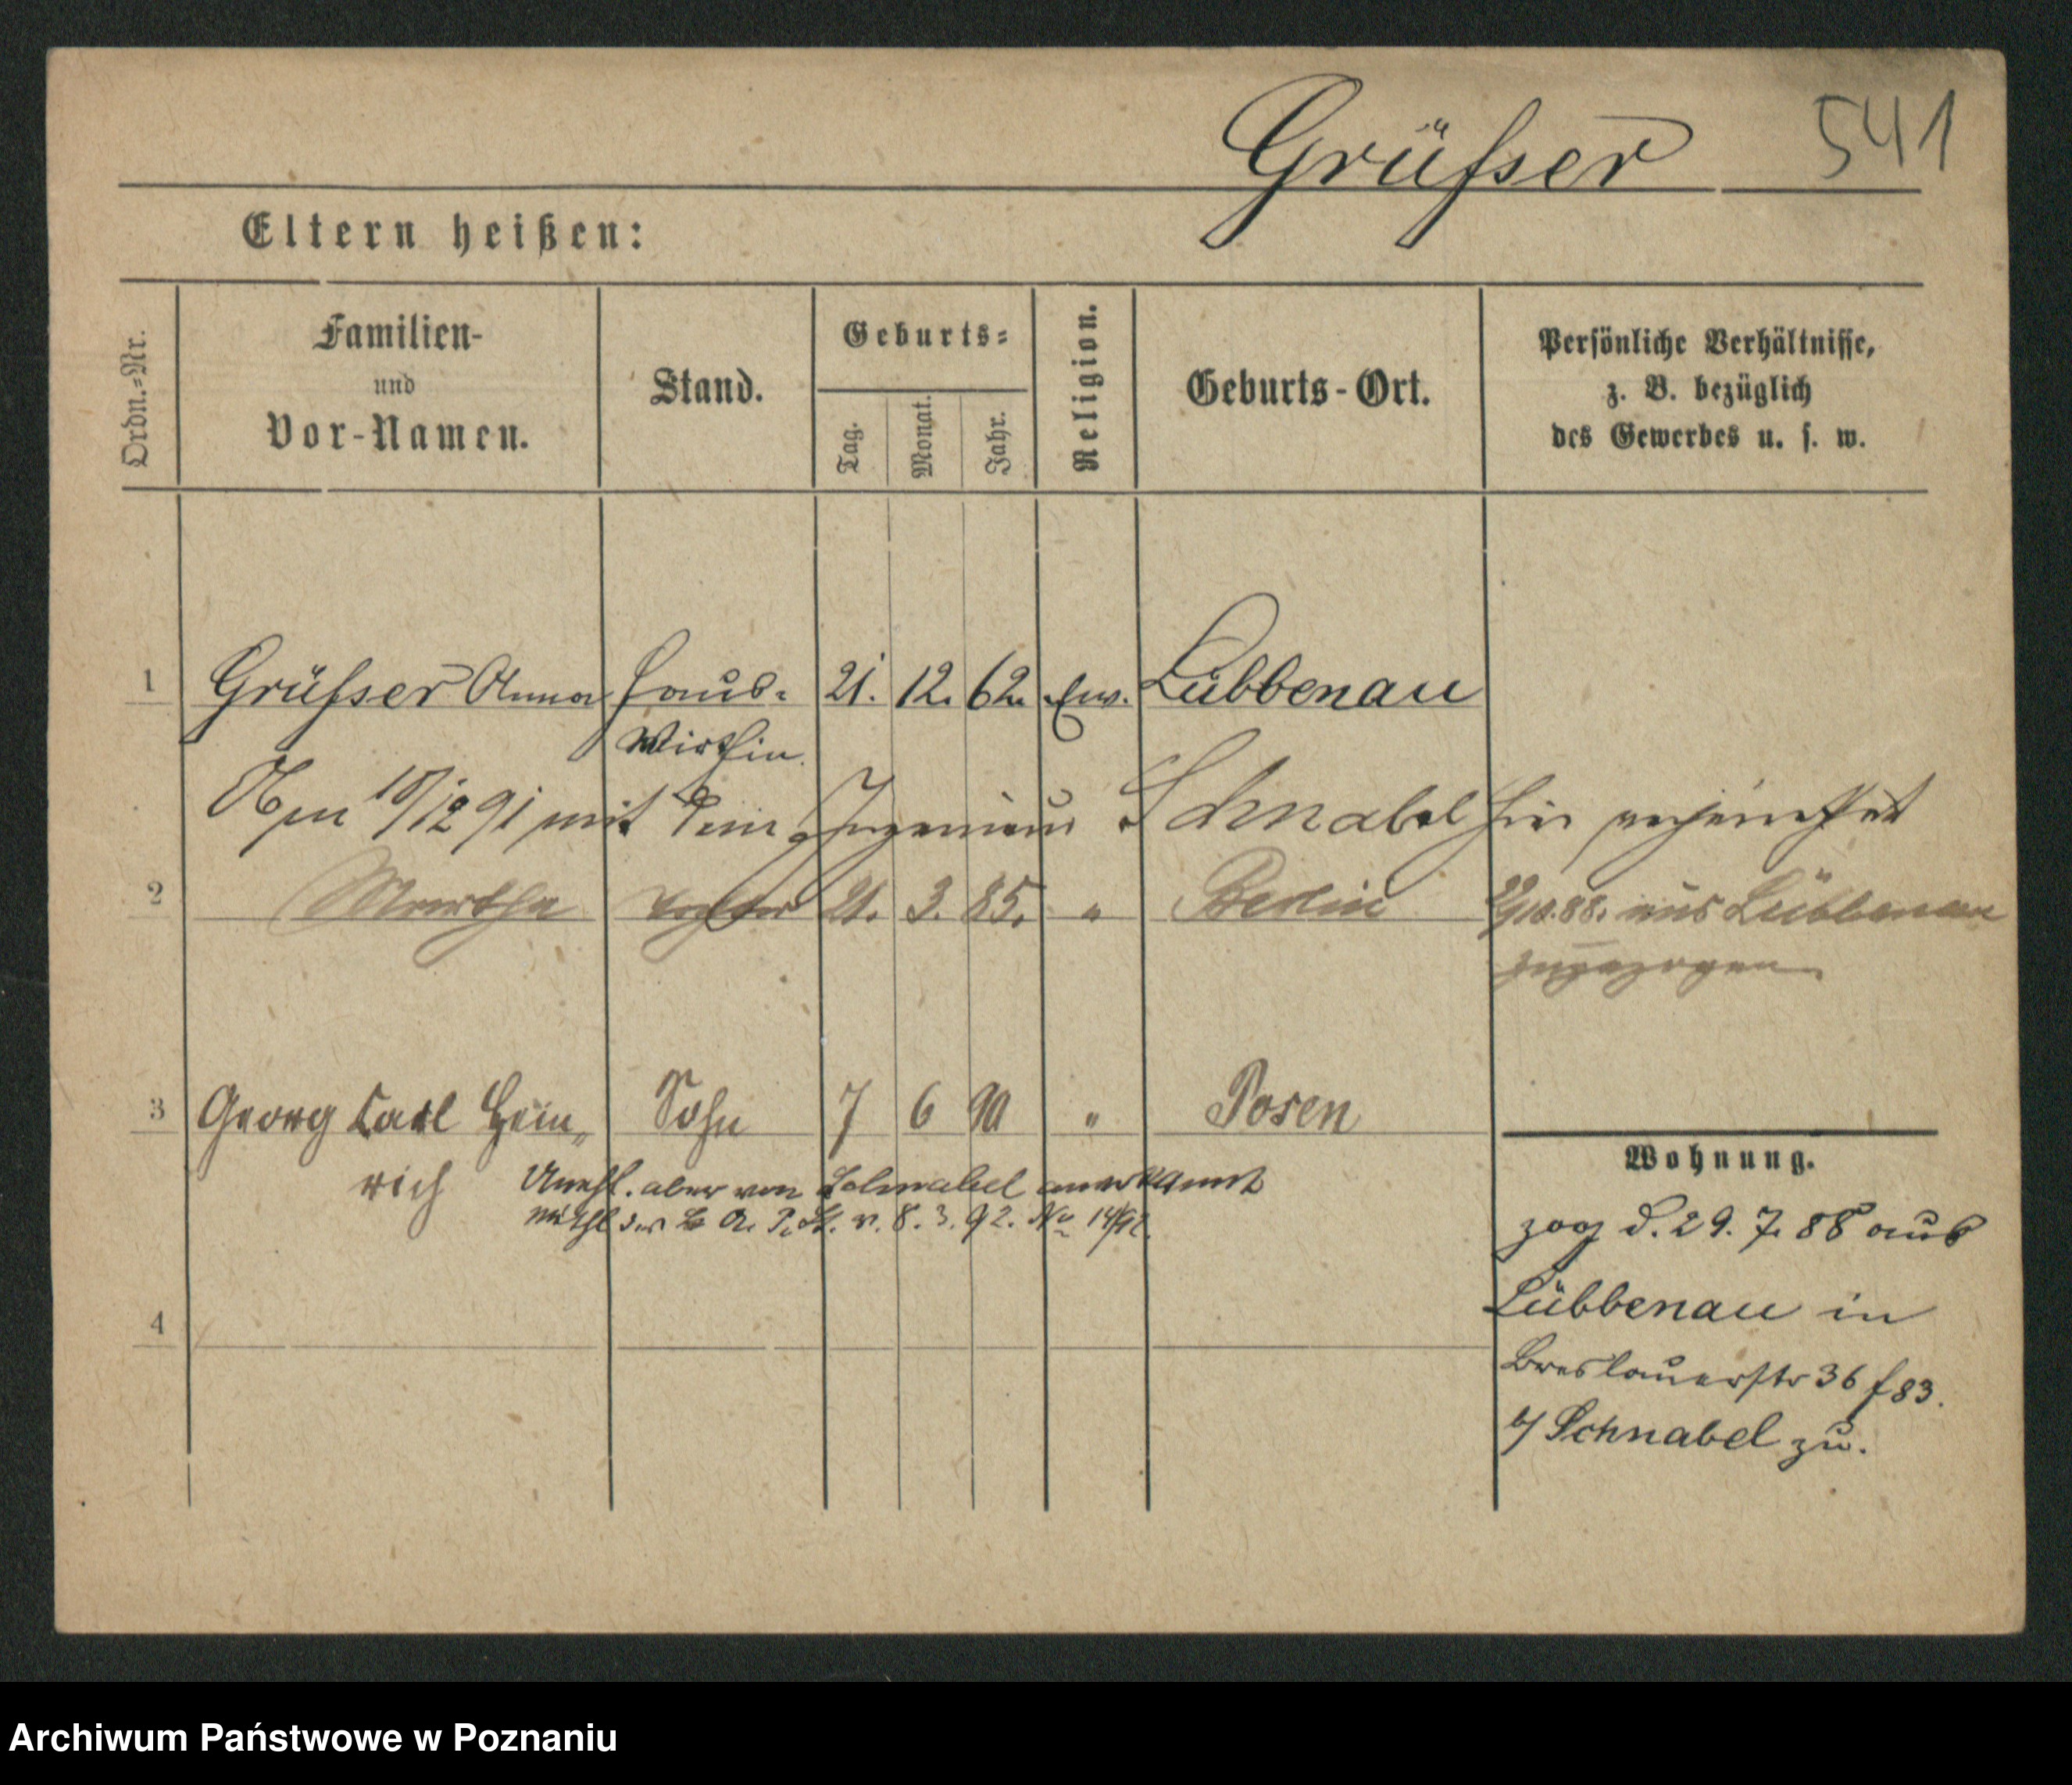 Grüßer 541
Eltern heißen:
Ordn.-Nr.
Familien-
und
Vor-Namen.
Stand.
Geburts-
Tag.
Monat.
Jahr.
Religion.
Geburts-Ort.
Persönliche Verhältnisse,
z. B. bezüglich
des Gewerbes u. s. w.
1 Grüßer Anna Haus- 21. 12. 62. Ev. Lübbenau
Wirthin.
12 91 mit dem Ingenieur Schnabel hier verheirathet
2 Martha Tochter 21. 3. 85. " Berlin 88. aus Lübbenau
zugezogen
3 Georg Carl Hein„ Sohn 7 6 90 " Posen
rich
Unehl. aber von Schnabel anerkannt
v. 8. 3. 92. No 14/92.
4
Wohnung.
zog d. 29. 7. 88 aus
Lübbenau in
Breslauerstr 36 f 83.
b/ Schnabel zu.
Archiwum Państwowe w Poznaniu